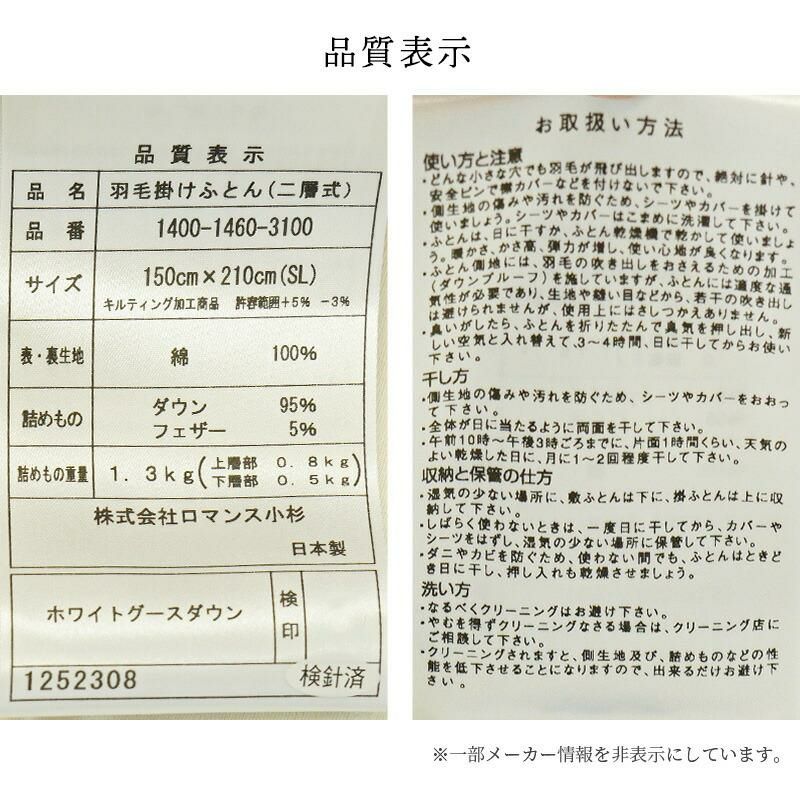 品質表示
品質表示
品名 羽毛掛けふとん(二層式)
品番 1400-1460-3100
サイズ 150cm×210cm(SL)
キルティング加工商品 許容範囲+5% -3%
表・裏生地 綿 100%
詰めもの ダウン 95%
フェザー 5%
詰めもの重量 1.3kg(上層部 0.8kg
下層部 0.5kg)
株式会社ロマンス小杉
日本製
ホワイトグースダウン 検印
1252308 検針済
お取扱い方法
使い方と注意
・どんな小さな穴でも羽毛が飛び出しますので、絶対に針や、
安全ピンで襟カバーなどを付けないで下さい。
・側生地の傷みや汚れを防ぐため、シーツやカバーを掛けて
使いましょう。シーツやカバーはこまめに洗濯して下さい。
・ふとんは、日に干すか、ふとん乾燥機で乾かして使いましょ
う。暖かさ、かさ高、弾力が増し、使い心地が良くなります。
・ふとん側地には、羽毛の吹き出しをおさえるための加工
(ダウンプルーフ)を施していますが、ふとんには適度な通
気性が必要であり、生地や縫い目などから、若干の吹き出し
は避けられませんが、使用上にはさしつかえありません。
・臭いがしたら、ふとんを折りたたんで臭気を押し出し、新
しい空気と入れ替えて、3~4時間、日に干してからお使い
下さい。
干し方
・側生地の傷みや汚れを防ぐため、シーツやカバーをおおっ
て下さい。
・全体が日に当たるように両面を干して下さい。
・午前10時~午後3時ごろまでに、片面1時間くらい、天気の
よい乾燥した日に、月に1~2回程度干して下さい。
収納と保管の仕方
・湿気の少ない場所に、敷ふとんは下に、掛ふとんは上に収
納して下さい。
・しばらく使わないときは、一度日に干してから、カバーや
シーツをはずし、湿気の少ない場所に保管して下さい。
・ダニやカビを防ぐため、使わない間でも、ふとんはときど
き日に干し、押し入れも乾燥させましょう。
洗い方
・なるべくクリーニングはお避け下さい。
・やむを得ずクリーニングなさる場合は、クリーニング店に
ご相談して下さい。
・クリーニングされますと、側生地及び、詰めものなどの性
能を低下させることになりますので、出来るだけお避け下
さい。
※一部メーカー情報を非表示にしています。